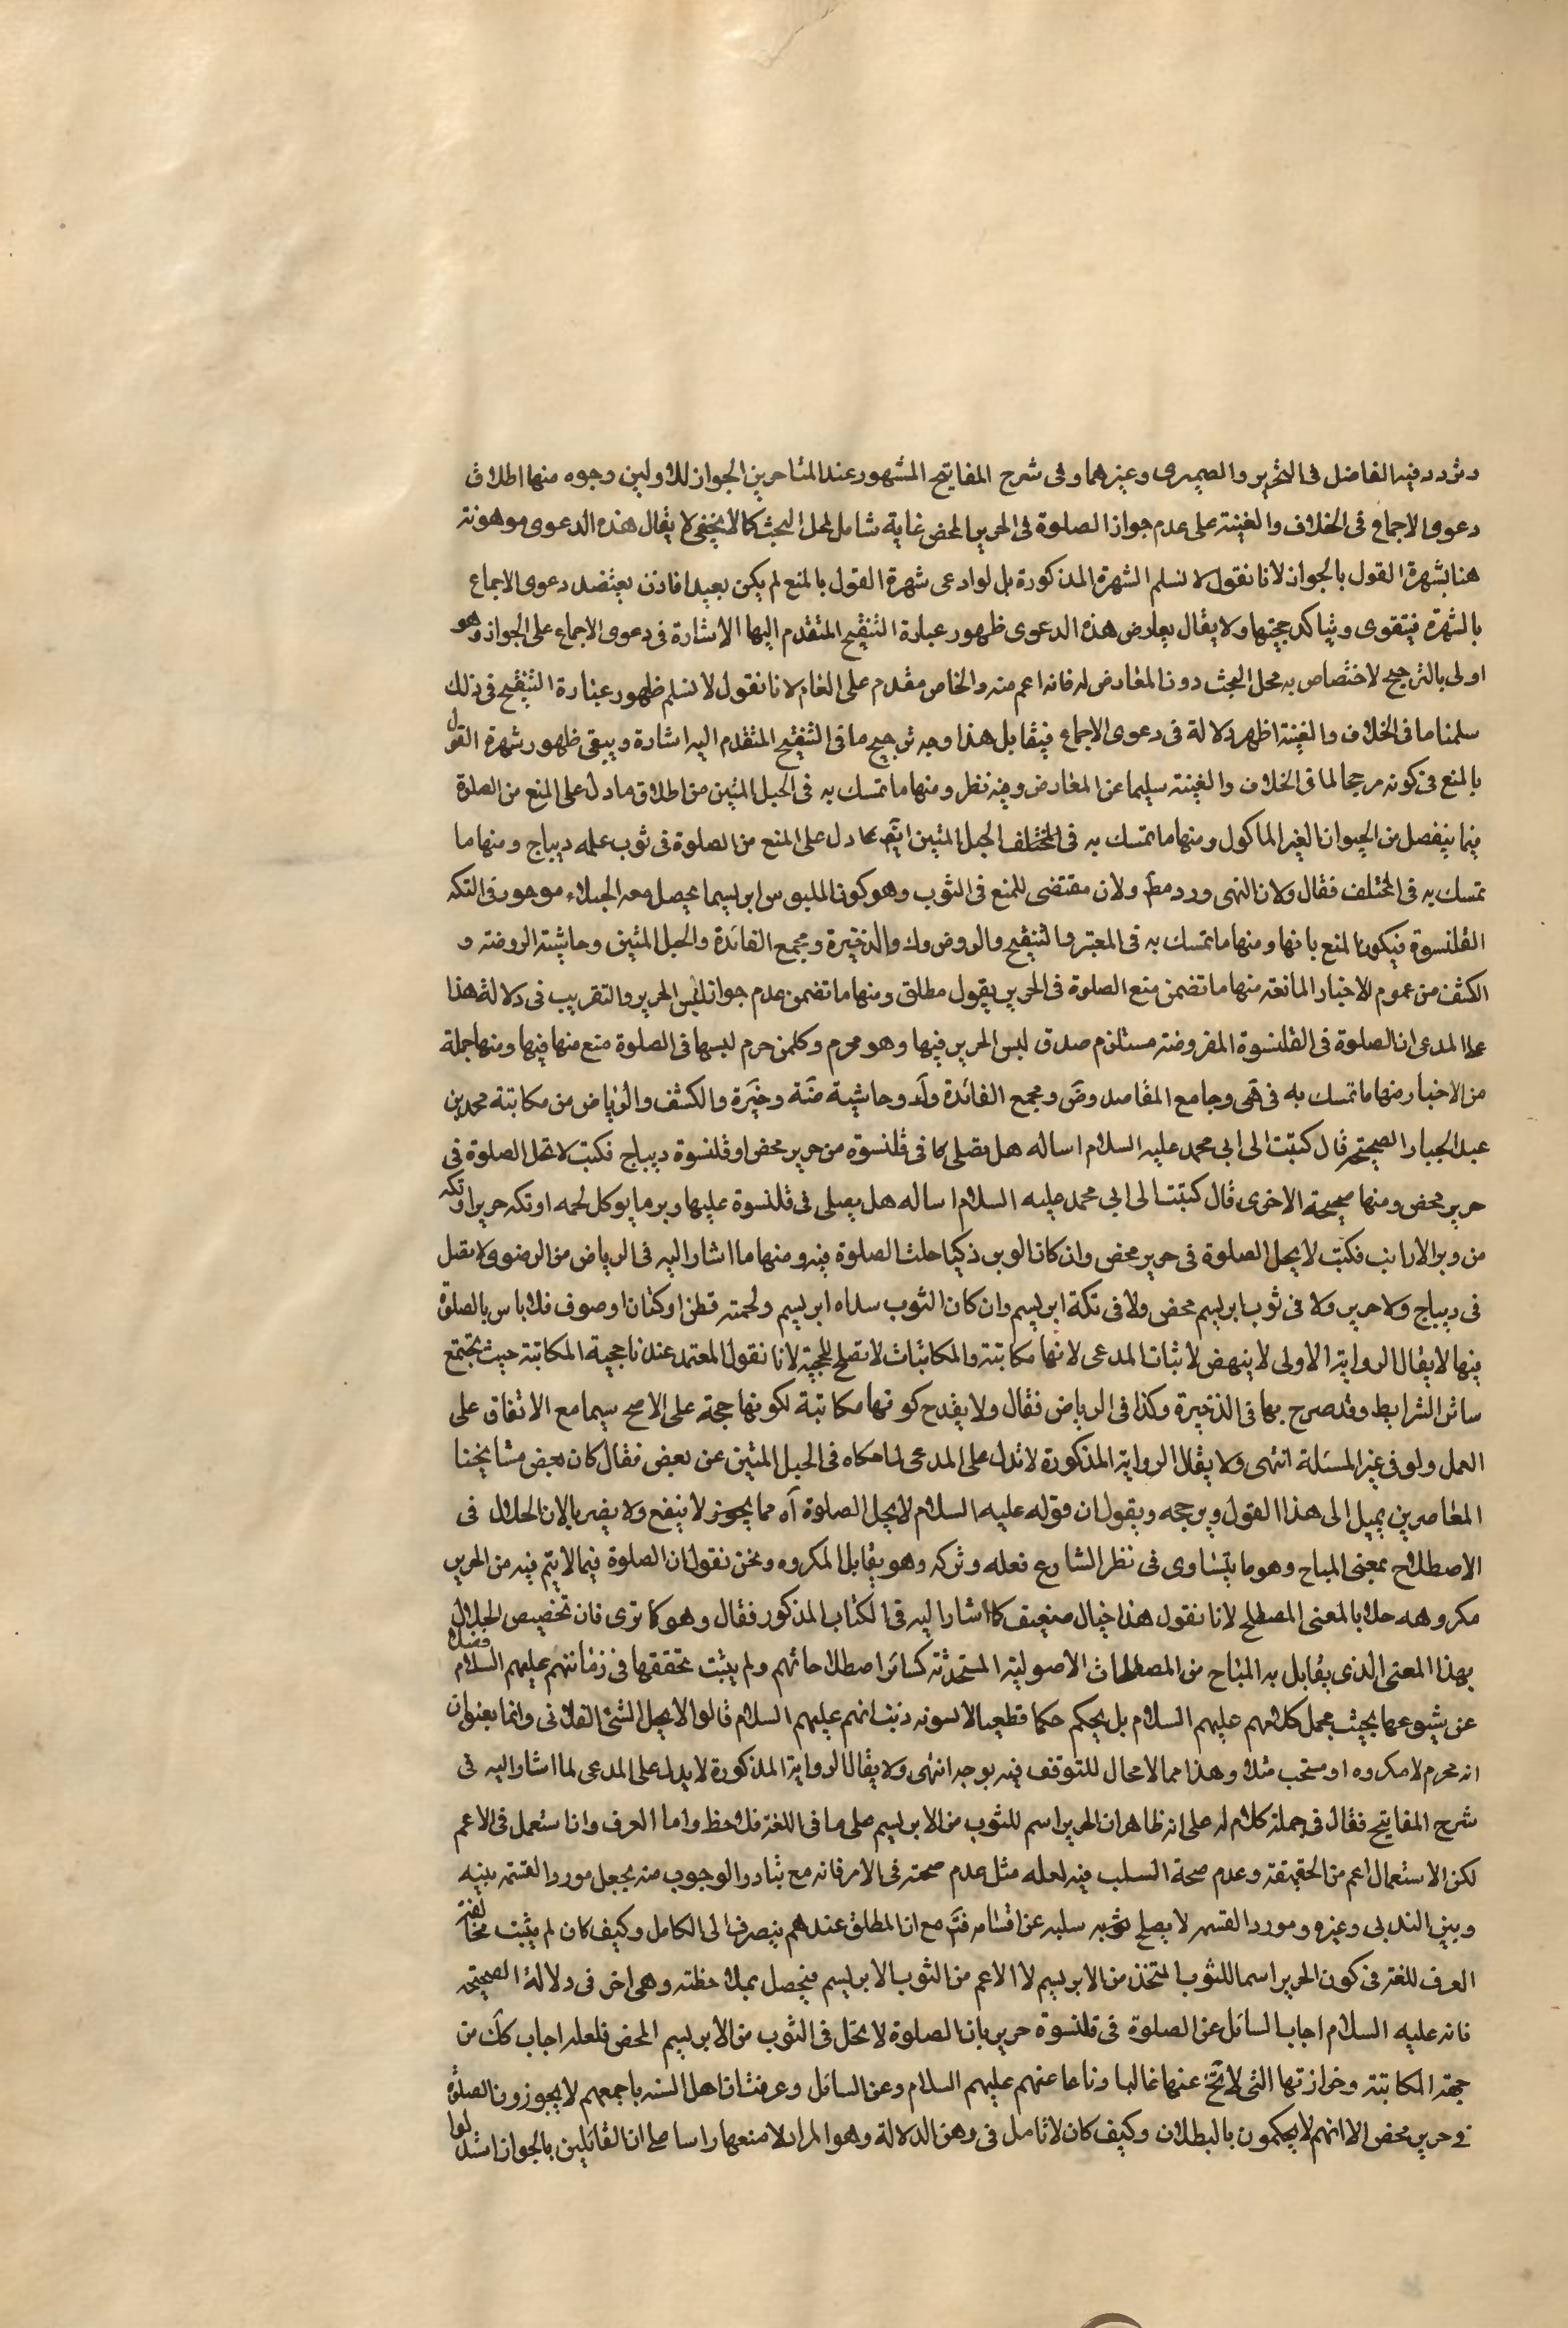 وتردد فيه الفاضل في التحرير والصيمرى وغيرهما وفى شرح المفاتيح المشهور عند المتاخرين الجواز للاولين وجوه منها اطلاق
دعوى الاجماع فى الخلاف والغنية على عدم جواز الصلوة فى الحرير المحض غاية شامل لمحل البحث كما لا يخفى لا يقال هذه الدعوى موهونة
هنا بشهرة القول بالجواز لانا نقول لا نسلم الشهرة المذكورة بل لو ادعى شهرة القول بالمنع لم يكن بعيدا فاذن يعتضد دعوى الاجماع
بالشهرة فيتقوى ويتاكد حجيتها ولا يقال يعارض هذه الدعوى ظهور عبارة التنقيح المتقدم اليها الاشارة فى دعوى الاجماع على الجواز وهو
اولى بالترجيح لاختصاص به محل البحث دون المعارض له فانه اعم منه والخاص مقدم على العام لانا نقول لا نسلم ظهور عبارة التنقيح فى ذلك
سلمنا ما فى الخلاف والغنية اظهر دلالة فى دعوى الاجماع فيقابل هذا وجه ترجيح ما فى التنقيح المتقدم اليه اشارة ويبقى ظهور شهرة القول
بالمنع فى كونه مرجحا لما فى الخلاف والغنية سليما عن المعارض وفيه نظر ومنها ما تمسك به فى الحبل المتين من اطلاق ما دل على المنع من الصلوة
فيما ينفصل من الحيوان الغير الماكول ومنها ما تمسك به فى المختلف الحبل المتين ايضا مما دل على المنع من الصلوة فى ثوب علمه ديباج ومنها ما
تمسك به فى المختلف فقال ولان النهى ورد مط ولان مقتضى للمنع فى الثوب وهو كون الملبوس ابريسما يحصل معه الخيلاء موجود فى التكة
القلنسوة فيكون المنع ومنها ما تمسك به فى المعتبر والتنقيح والروض وك والذخيرة ومجمع الفائدة والحبل المتين وحاشية الروضة و
الكشف من عموم الاخبار المانعة منها ما تضمن منع الصلوة فى الحرير بقول مطلق ومنها ما تضمن عدم جواز لبس الحرير والتقريب فى دلالة هذا
على المدعى ان الصلوة فى القلنسوة المفروضة مستلزم صدق لبس الحرير فيها وهو محرم وكلمن حرم لبسها فى الصلوة منع منها فيها ومنها جملة
من الاخبار منها ما تمسك به فى هى وجامع المقاصد وض ومجمع الفائدة وك وحاشية ضة وخيرة والكشف والرياض من مكاتبة محمد بن
عبد الجبار الصحيحة قال كتبت الى ابى محمد عليه السلام اساله هل يصلى كا فى قلنسوة من حرير محض او قلنسوة ديباج فكتب لا تحل الصلوة فى
حرير محض ومنها صحيحة الاخرى قال كتبت الى ابى محمد عليه السلام اساله هل يصلى فى قلنسوة عليها وبر ما يوكل لحمه او تكه حرير او تكه
من وبر الارانب فكتب لا يحل الصلوة فى حرير محض وان كان الوبر ذكيا حلت الصلوة فيه ومنها ما اشار اليه فى الرياض من الرضوى لا تصل
فى ديباج ولا حرير ولا فى ثوب ابريسم محض ولا فى تكة ابريسم وان كان الثوب سداه ابريسم ولحمته قطن او كتان او صوف فلا باس بالصلوة
فيها لا يقال الرواية الاولى لا ينهض لاثبات المدعى لانها مكاتبة والمكاتبات لا تصلح للحجية لانا نقول المعتمد عندنا حجية المكاتبة حيث يجتمع
سائر الشرايط وقد صرح بها فى الذخيرة وكذا فى الرياض فقال ولا يقدح كونها مكاتبة لكونها حجة على الاصح سيما مع الاتفاق على
العمل ولو فى غير المسئلة انتهى ولا يقال الرواية المذكورة لا تدل على المدعى لما حكاه فى الحبل المتين عن بعض فقال كان بعض مشايخنا
المعاصرين يميل الى هذا القول ويرجحه ويقول ان قوله عليه السلام لا يحل الصلوة اه مما يجوز لا ينفع ولا يضر بالان الحلال فى
الاصطلاح بمعنى المباح وهو ما يتساوى فى نظر الشارع فعله وتركه وهو يقابل المكروه ونحن نقول ان الصلوة فيما لا يتم فيه من الحرير
مكروهه حلا بالمعنى المصطلح لانا نقول هذا خيال ضعيف كما اشار اليه فى الكتاب المذكور فقال وهو كما ترى فان تخصيص الحلال
بهذا المعنى الذى يقابل به المباح من المصطلحات الاصولية المستحدثة كسائر اصطلاحاتهم ولم يثبت تحققها فى زمانهم عليهم السلام فضلا
عن شيوعها بحيث يحمل كلامهم عليهم السلام بل يحكم حكما قطعيا انهم عليهم السلام قالوا لا يحل الشئ الفلانى وانما يعنون
انه محرم لا مكروه او مستحب مثلا وهذا مما لا مجال للتوقف فيه بوجه انتهى ولا يقال الرواية المذكورة لا يدل على المدعى لما اشار اليه فى
شرح المفاتيح فقال فى جملة كلام له على انه ظاهر ان الحرير اسم للثوب من الابريسم على ما فى اللغة فلاحظ واما العرف وان استعمل فى الاعم
لكن الاستعمال اعم من الحقيقة وعدم صحة السلب فيه لعله مثل عدم صحته فى الامر فانه مع تبادر الوجوب منه يجعل مورد القسمة بينه
وبين الندبى وغيره ومورد القسمه لا يصلح سلبه عن اقسامه فت مع ان المطلق عندهم ينصرف الى الكامل وكيف كان لم يثبت مخالفة
العرف للغة فى كون الحرير اسما للثوب المتخذ من الابريسم لا الاعم من الثوب الابريسم فيحصل بملاحظته وهن اخر فى دلالة الصحيحة
فانه عليه السلام اجاب السائل عن الصلوة فى قلنسوة حرير بان الصلوة لا تحل فى الثوب من الابريسم المحض فلعله اجاب كك من
جهة المكاتبة وحزازتها التى لا تخ عنها غالبا دفاعا عنهم عليهم السلام وعن السائل وعرفت ان اهل السنه باجمعهم لا يجوزون الصلوة
فى حرير محض الا انهم لا يحكمون بالبطلان وكيف كان لا تامل فى وهن الدلالة وهو المراد لا منعها راسا مع ان القائلين بالجواز استدلوا